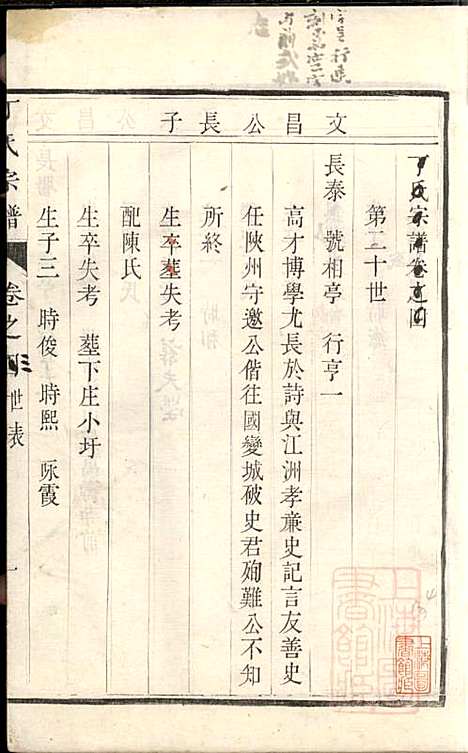 丁氏宗譜卷之四
第二十世
文昌公長子
長泰 號相亭 行亨一
高才博學尤長於詩與江洲孝亷史記言友善史
任陝州守邀公偕往國變城破史君殉難公不知
所終
生卒墓失考
配陳氏
生卒失考 墓下庄小圩
生子三 時俊 時熙 咏霞
丁氏宗譜 卷之 世表 一
上海圖書館藏